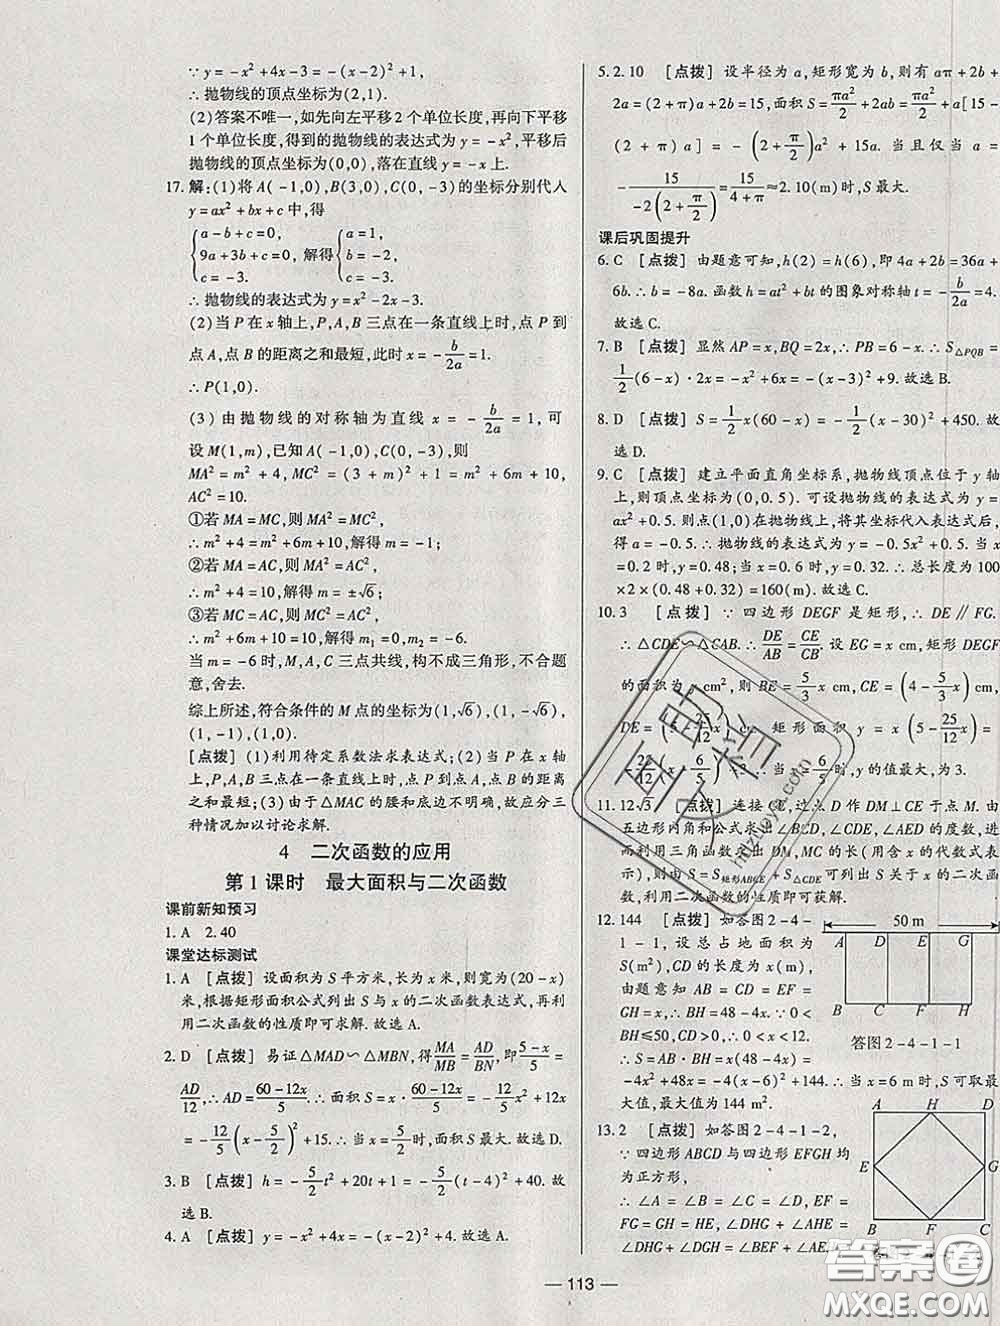 ∵ y = -x² + 4x - 3 = -(x - 2)² + 1,
∴ 抛物线的顶点坐标为(2,1).
(2)答案不唯一,如先向左平移2个单位长度,再向下平移
1个单位长度,得到的抛物线的表达式为 y = -x²,平移后
抛物线的顶点坐标为(0,0),落在直线 y = -x 上.
17. 解:(1)将 A(-1,0),B(3,0),C(0,-3)的坐标分别代入
y = ax² + bx + c 中,得
{a - b + c = 0, 9a + 3b + c = 0, c = -3. 解得 {a = 1, b = -2, c = -3.
∴ 抛物线的表达式为 y = x² - 2x - 3.
(2)当 P 在 x 轴上,P,A,B 三点在一条直线上时,点 P 到
点 A,点 B 的距离之和最短,此时 x = -b/2a = 1.
∴ P(1,0).
(3)由抛物线的对称轴为直线 x = -b/2a = 1,可
设 M(1,m),已知 A(-1,0),C(0,-3),则
MA² = m² + 4,MC² = (3 + m)² + 1 = m² + 6m + 10,
AC² = 10.
①若 MA = MC,则 MA² = MC².
∴ m² + 4 = m² + 6m + 10,解得 m = -1;
②若 MA = AC,则 MA² = AC².
∴ m² + 4 = 10,解得 m = ±√6;
③若 MC = AC,则 MC² = AC².
∴ m² + 6m + 10 = 10,解得 m₁ = 0,m₂ = -6.
当 m = -6 时,M,A,C 三点共线,构不成三角形,不合题
意,舍去.
综上所述,符合条件的 M 点的坐标为(1,√6),(1,-√6),
(1,-1),(1,0).
[点拨] (1)利用待定系数法求表达式;(2)当 P 在 x 轴
上,P,A,B 三点在一条直线上时,点 P 到点 A,B 的距离
之和最短;(3)由于△MAC 的腰和底边不明确,故应分三
种情况加以讨论求解.
4 二次函数的应用
第1课时 最大面积与二次函数
课前新知预习
1. A 2. 40
课堂达标测试
1. A [点拨] 设面积为 S 平方米,长为 x 米,则宽为(20 - x)
米,根据矩形面积公式列出 S 与 x 的二次函数表达式,再利
用二次函数的性质即可求解. 故选 A.
2. D [点拨] 易证△MAD∽△MBN,得 MA/MB = AD/BN,即 (5 - x)/5 =
AD/12,∴ AD = (60 - 12x)/5. ∴ S = (60 - 12x)/5 · x = -12/5 x² + 12x
= -12/5 (x - 5/2)² + 15. ∴ 当 x = 5/2 时,面积 S 最大. 故选 D.
3. B [点拨] h = -5/2 t² + 20t + 1 = -5/2 (t - 4)² + 41. 故
选 B.
4. A [点拨] y = -x² + 4x = -(x - 2)² + 4. 故选 A.
5. 2.10 [点拨] 设半径为 a,矩形宽为 b,则有 aπ + 2b +
2a = (2 + π)a + 2b = 15,面积 S = πa²/2 + 2ab = πa²/2 + a[15 -
(2 + π)a] = -(2 + π/2)a² + 15a. 当且仅当 a =
-15/(-2(2 + π/2)) = 15/(4 + π) ≈ 2.10(m)时,S 最大.
课后巩固提升
6. C [点拨] 由题意可知,h(2) = h(6),即 4a + 2b = 36a +
6b. ∴ b = -8a. 函数 h = at² + bt 的图象对称轴 t = -b/2a = 4.
故选 C.
7. B [点拨] 显然 AP = x,BQ = 2x,∴ PB = 6 - x. ∴ S△PQB =
1/2 (6 - x) · 2x = -x² + 6x = -(x - 3)² + 9. 故选 B.
8. D [点拨] S = 1/2 x(60 - x) = -1/2 (x - 30)² + 450. 故
选 D.
9. C [点拨] 建立平面直角坐标系,抛物线顶点位于 y 轴
上,则顶点坐标为(0,0.5). 可设抛物线的表达式为 y =
ax² + 0.5. 则点(1,0)在抛物线上,将其坐标代入表达式后,
得 a = -0.5. ∴ 抛物线的表达式为 y = -0.5x² + 0.5. 当 x
= 0.2 时,y = 0.48. 当 x = 0.6 时,y = 0.32. ∴ 总长度为 100
×2×(0.48 + 0.32) = 160(m). 故选 C.
10. 3 [点拨] ∵ 四边形 DEGF 是矩形,∴ DE∥FG.
∴ △CDE∽△CAB. ∴ DE/AB = CE/CB. 设 EG = x cm,矩形 DEGF
的面积为 y cm²,则 BE = 5/3 x cm,CE = (4 - 5/3 x) cm,
DE = (5 - 25/12 x) cm. 矩形面积 y = x(5 - 25/12 x) =
-25/12 (x - 6/5)² + 3. ∴ 当 x = 6/5 时,y 的值最大,为 3.
11. 12√3 [点拨] 连接 CE,过点 D 作 DM⊥CE 于点 M. 由
五边形内角和公式求出∠BCD,∠CDE,∠AED 的度数;
求出四边形 DM,MC 的长(用含 x 的代数式表
示),则由 S = S矩形ABCE + S△CDE 可列出 S 关于 x 的二次函
数,利用二次函数的性质即可获解.
12. 144 [点拨] 如答图 2-4-
1-1,设总占地面积为
S(m²),CD 的长度为 x(m),
由题意知 AB = CD = EF =
GH = x,∴ BH = 48 - 4x. ∵ 0 <
BH ≤ 50,CD > 0,∴ 0 < x < 12.
∴ S = AB · BH = x(48 - 4x) =
-4x² + 48x = -4(x - 6)² + 144. ∴ 当 x = 6 m 时,S 可取最
大值,最大值为 144 m².
50 m
A D E G
B C F H
答图 2-4-1-1
13. 2 [点拨] 如答图 2-4-1-2,
∵ 四边形 ABCD 与四边形 EFGH 均
为正方形,
∴ ∠A = ∠B = ∠C = ∠D,EF =
FG = GH = HE,∠DHG + ∠AHE =
∠DHG + ∠DGH = ∠BEF + ∠AEH
A H D
E G
B F C
— 113 —
答案卷
MXQE.COM